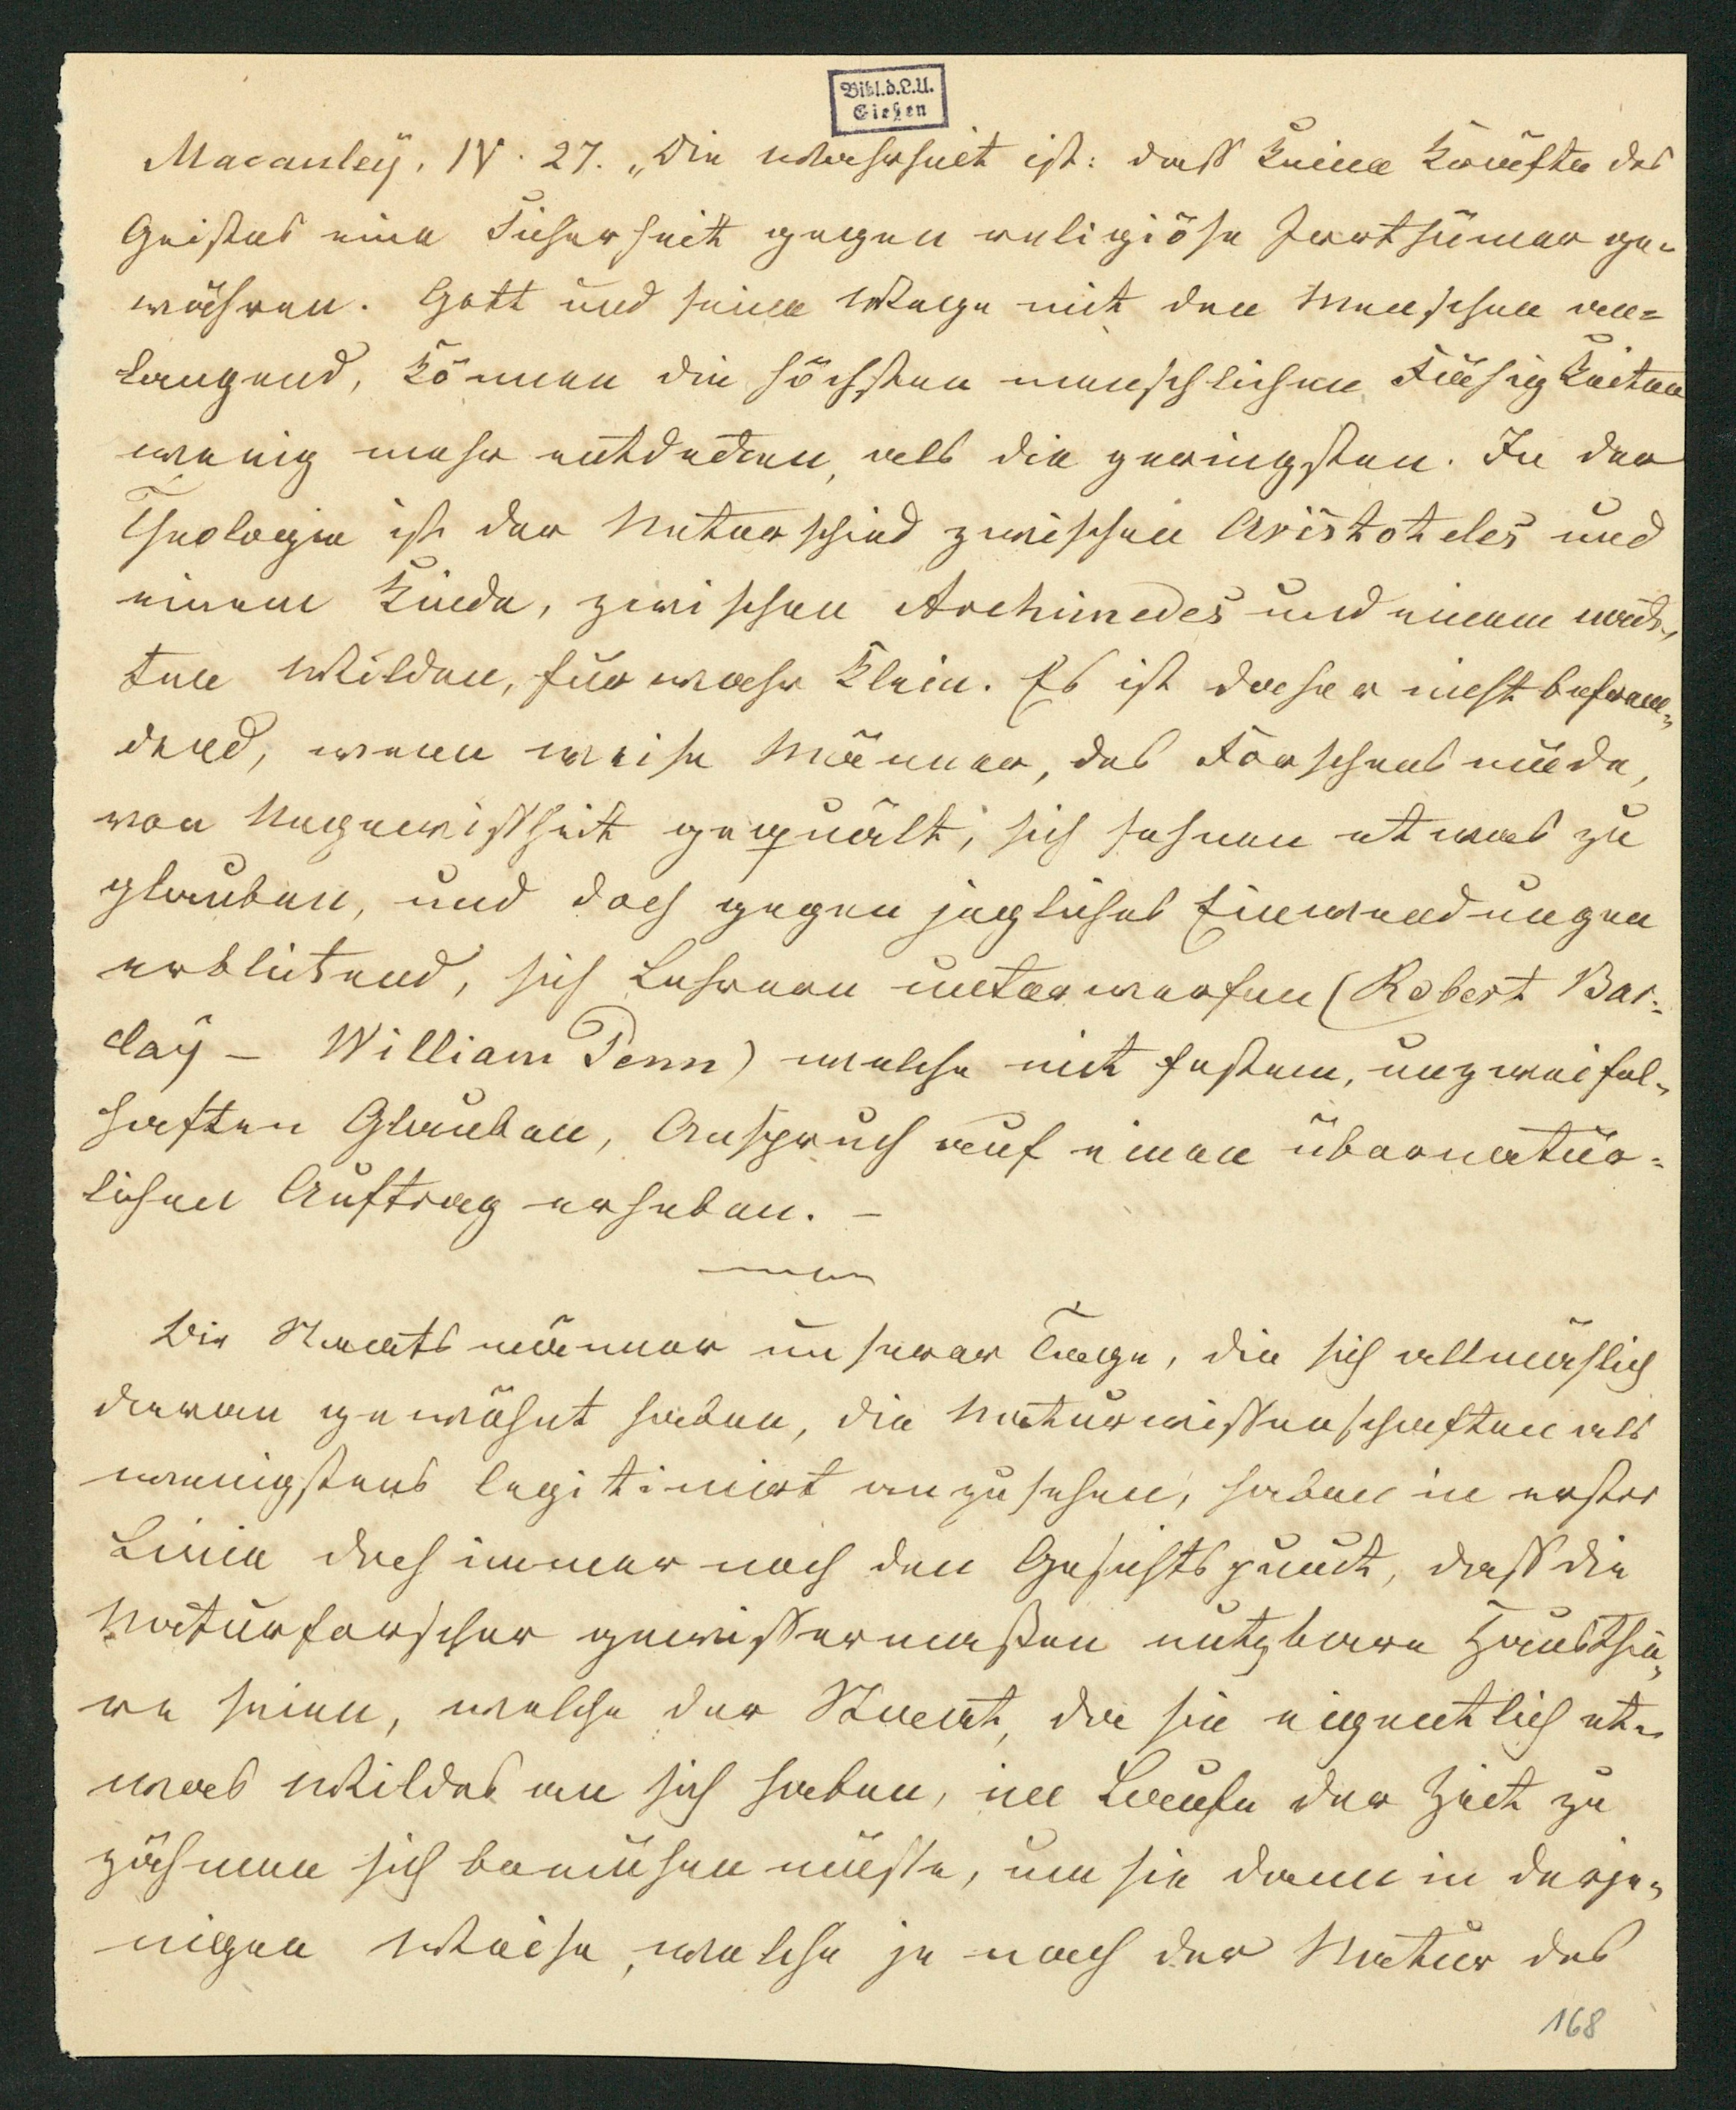 Bibl.d.L.U.
Gießen
Macauley, IV. 27. „Die Wahrheit ist: daß keine Kräfte des
Geistes eine Sicherheit gegen religiöse Irrthümer ge-
währen. Gott und seine Wege mit den Menschen an=
langend, können die höchsten menschlichen Fähigkeiten
wenig mehr entdecken, als die geringsten. In der
Theologie ist der Unterschied zwischen Aristoteles und
einem Kinde, zwischen Archimedes und einem nack-
ten Wilden, fürwahr klein. Es ist daher nicht befrem-
dend, wenn weise Männer, des Forschens müde,
von Ungewißheit gequält, sich sehnen etwas zu
glauben, und doch gegen jegliches Einwendungen
erblickend, sich Lehrern unterwerfen (Robert Bar-
clay – William Penn) welche mit festem, unzweifel-
haften Glauben, Anspruch auf einen übernatür=
lichen Auftrag erheben. –
Die Staatsmänner unserer Tage, die sich allmählich
daran gewöhnt haben, die Naturwissenschaften als
wenigstens legitimirt anzusehen, haben in erster
Linie doch immer noch den Gesichtspunct, daß die
Naturforscher gewissermaßen nutzbare Hausthie-
re seien, welche der Staat, da sie eigentlich et-
was Wildes an sich haben, im Laufe der Zeit zu
zähmen sich bemühen müsse, um sie dann in derje-
nigen Weise, welche je nach der Natur des
168